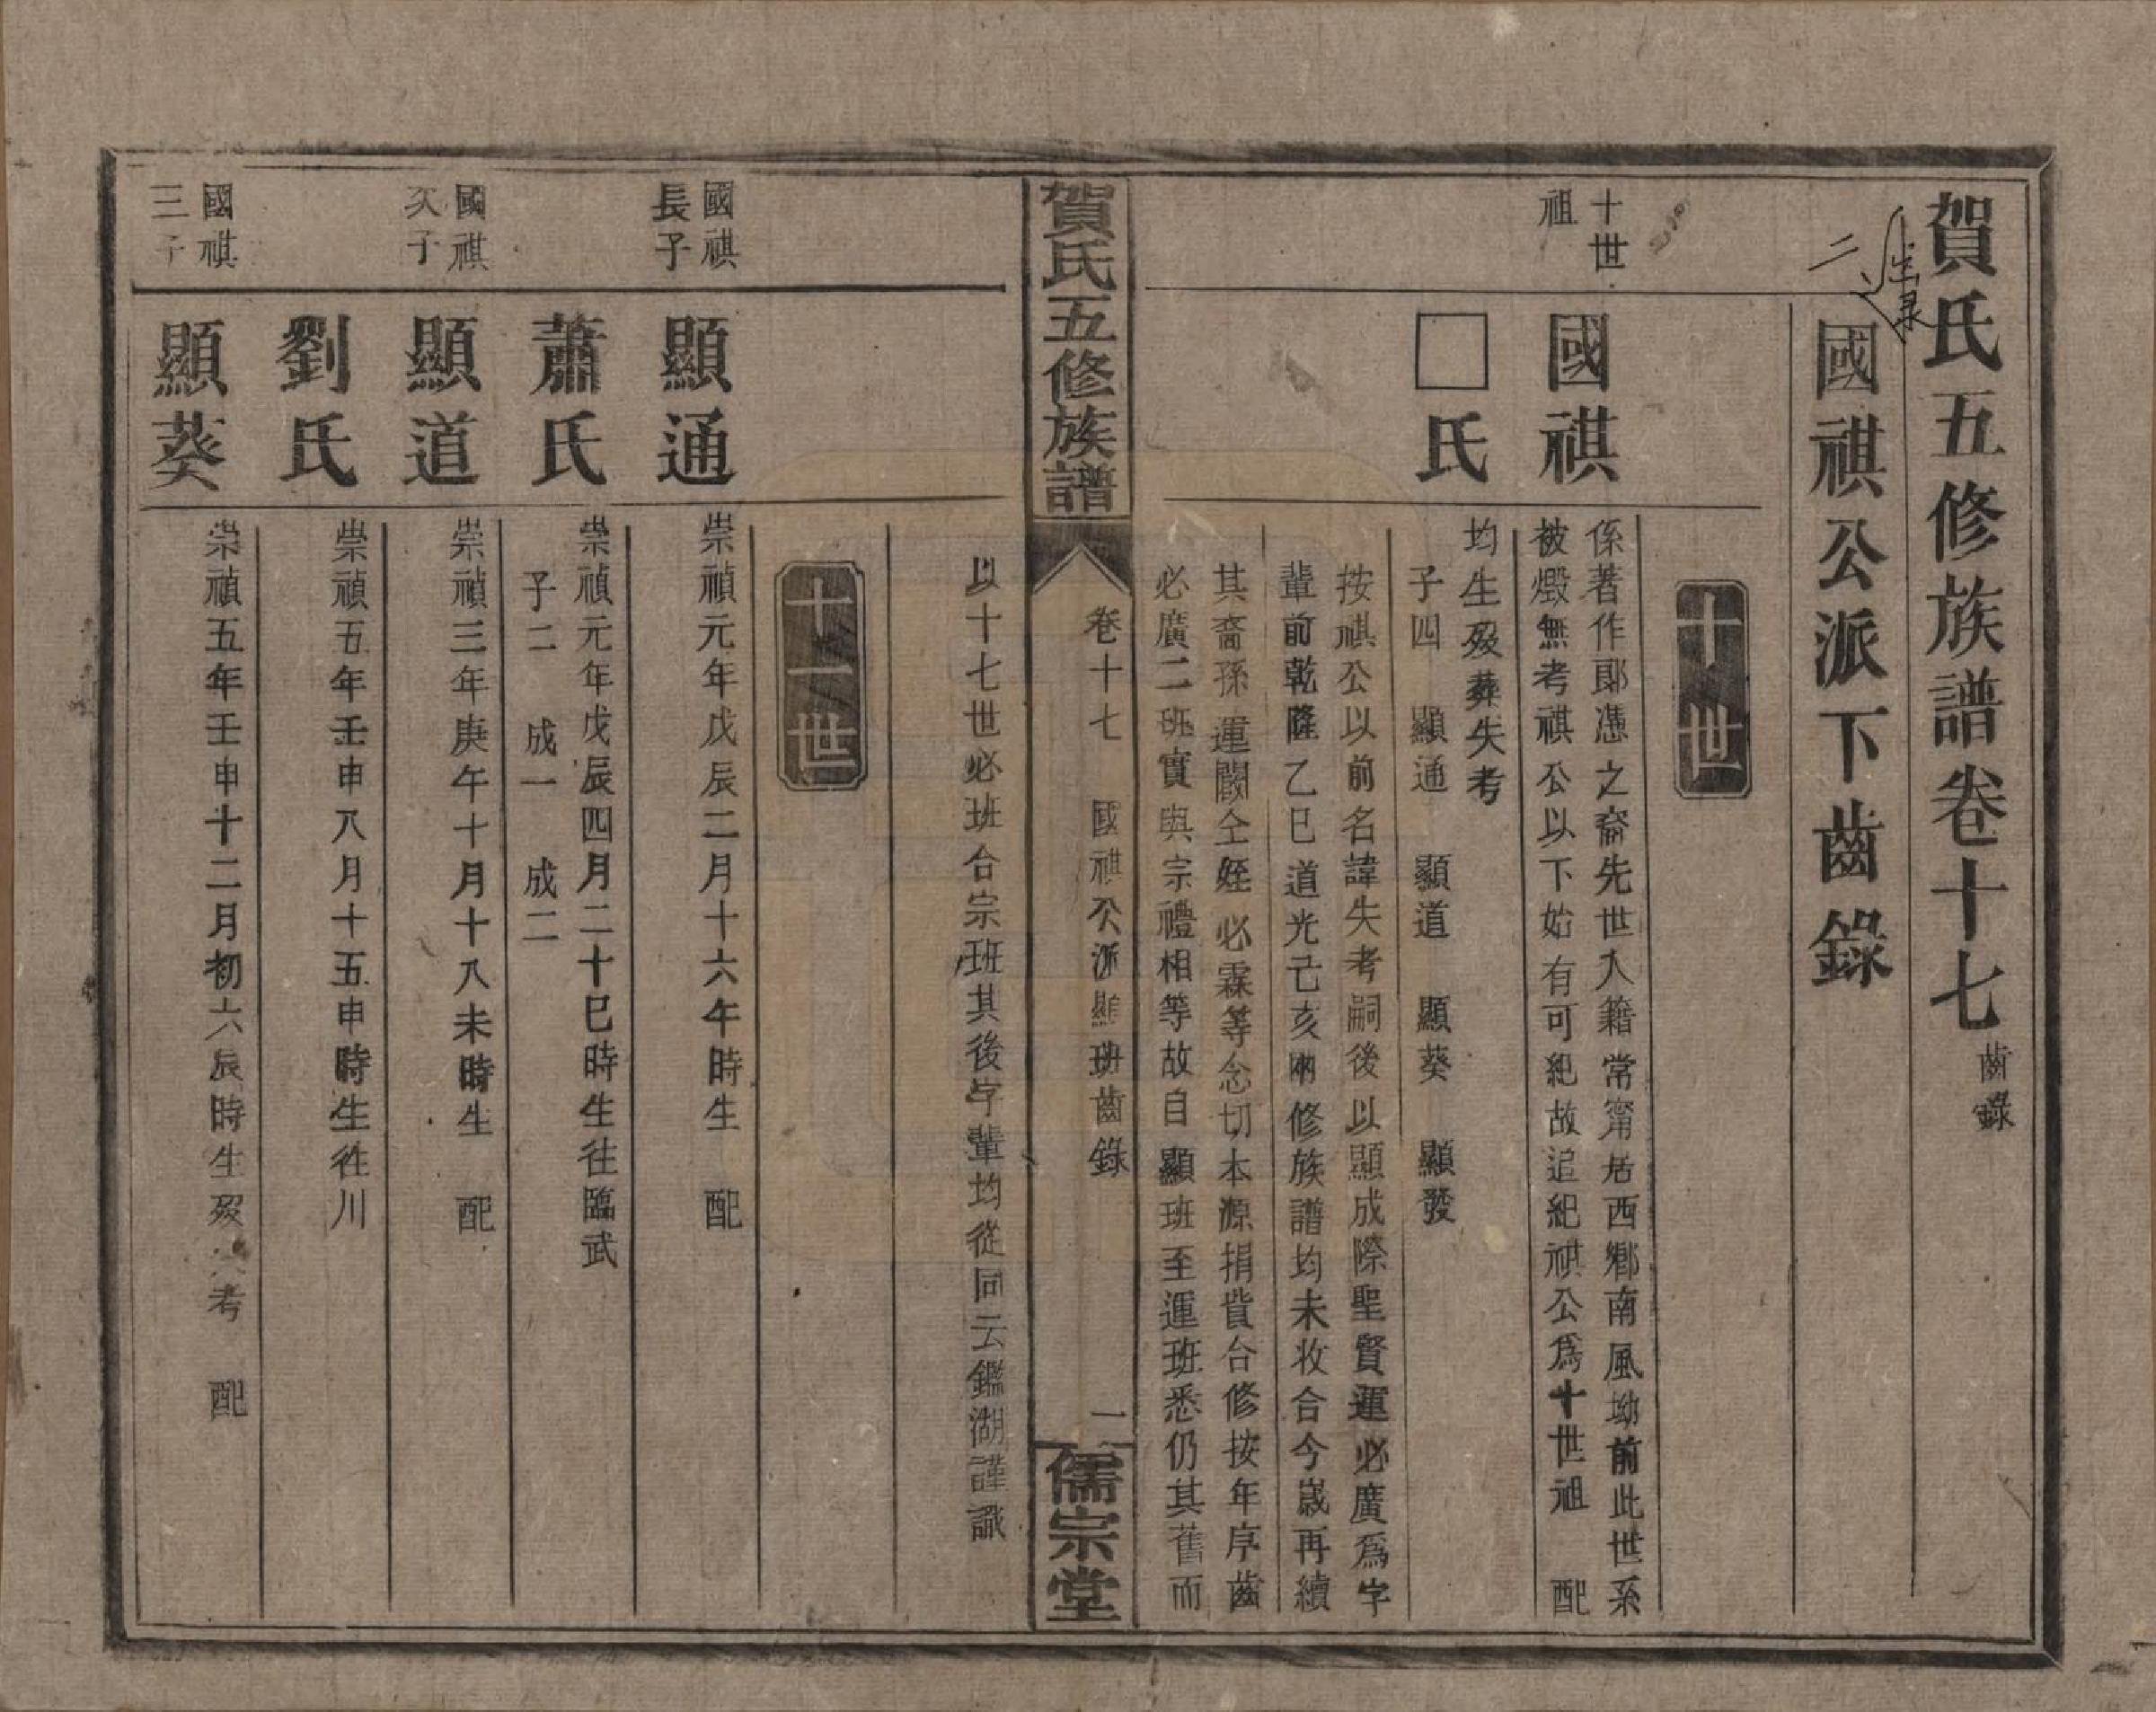 賀氏五修族譜卷十七 齒錄
國祺公派下齒錄
十世
十世
祖
國祺
係著作郎憑之裔先世入籍常甯居西鄉南風坳前此世系
被燬無考祺公以下始有可紀故追紀祺公為十世祖 配
□氏
均生歿葬失考
子四 顯通 顯道 顯葵 顯發
按祺公以前名諱失考嗣後以顯成際聖賢運必廣為字
輩前乾隆乙巳道光己亥兩修族譜均未收合今歲再續
其裔孫運閣仝姪必霖等念切本源捐貲合修按年序齒
必廣二班實與宗禮相等故自顯班至運班悉仍其舊而
賀氏五修族譜
卷十七 國祺公派顯班齒錄
一
儒宗堂
以十七世必班合宗班其後字輩均從同云鑑湖謹識
十一世
國祺
長子
顯通
崇禎元年戊辰二月十六午時生 配
蕭氏
崇禎元年戊辰四月二十巳時生往臨武
子二 成一 成二
國祺
次子
顯道
崇禎三年庚午十月十八未時生 配
劉氏
崇禎五年壬申八月十五申時生往川
國祺
三子
顯葵
崇禎五年壬申十二月初六辰時生歿失考 配